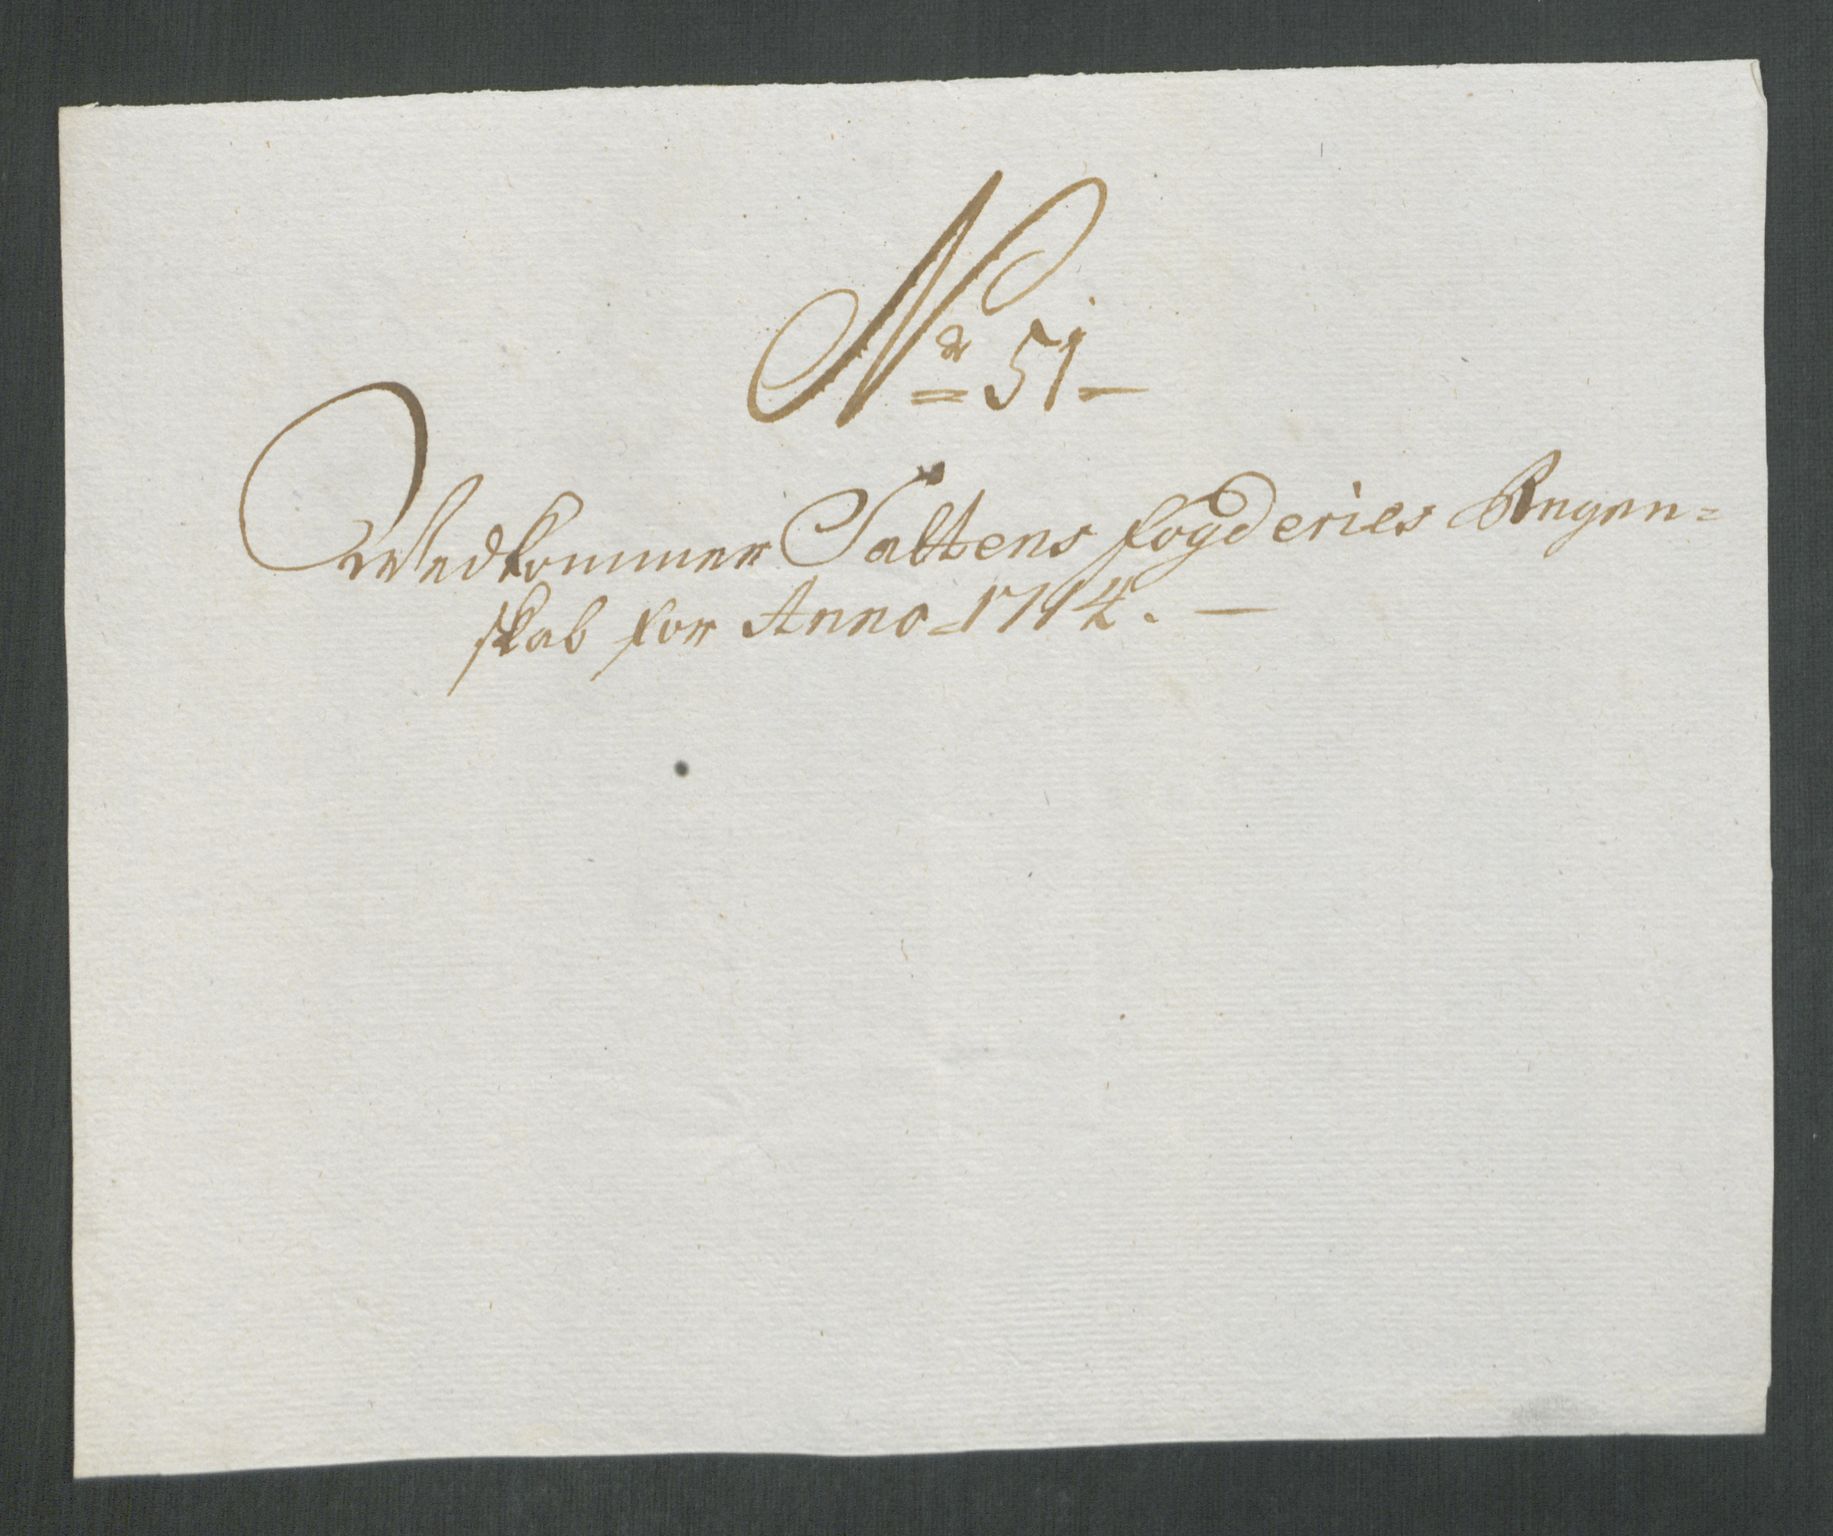 No 51
Vedkommer Saltens fogderies Regen=
skab for Anno 1714.